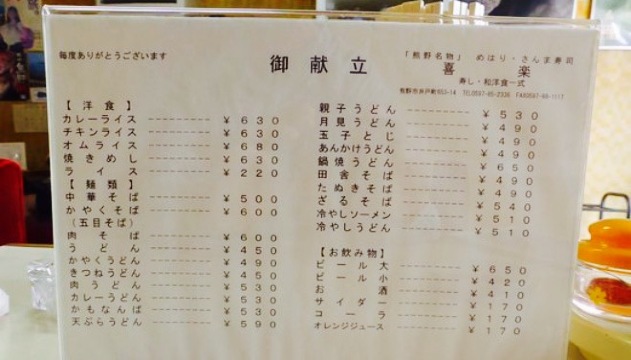 毎度ありがとうございます
御献立
「熊野名物」 めはり・さんま寿司
喜楽
寿し・和洋食一式
【洋食】
カレーライス ¥630
チキンライス ¥630
オムライス ¥680
焼きめし ¥630
ライス ¥220
【麺類】
中華そば ¥500
かやくそば ¥600
(五目そば)
肉そば ¥600
うどん ¥450
かやくうどん ¥490
きつねうどん ¥450
肉うどん ¥530
カレーうどん ¥530
かもなんば ¥530
天ぷらうどん ¥590
親子うどん ¥530
月見うどん ¥490
玉子とじ ¥490
あんかけうどん ¥490
鍋焼うどん ¥650
田舎そば ¥490
たぬきそば ¥490
ざるそば ¥540
冷やしソーメン ¥510
冷やしうどん ¥510
【お飲み物】
ビール大 ¥650
ビール小 ¥420
お酒 ¥410
サイダー ¥170
コーラ ¥170
オレンジジュース ¥170